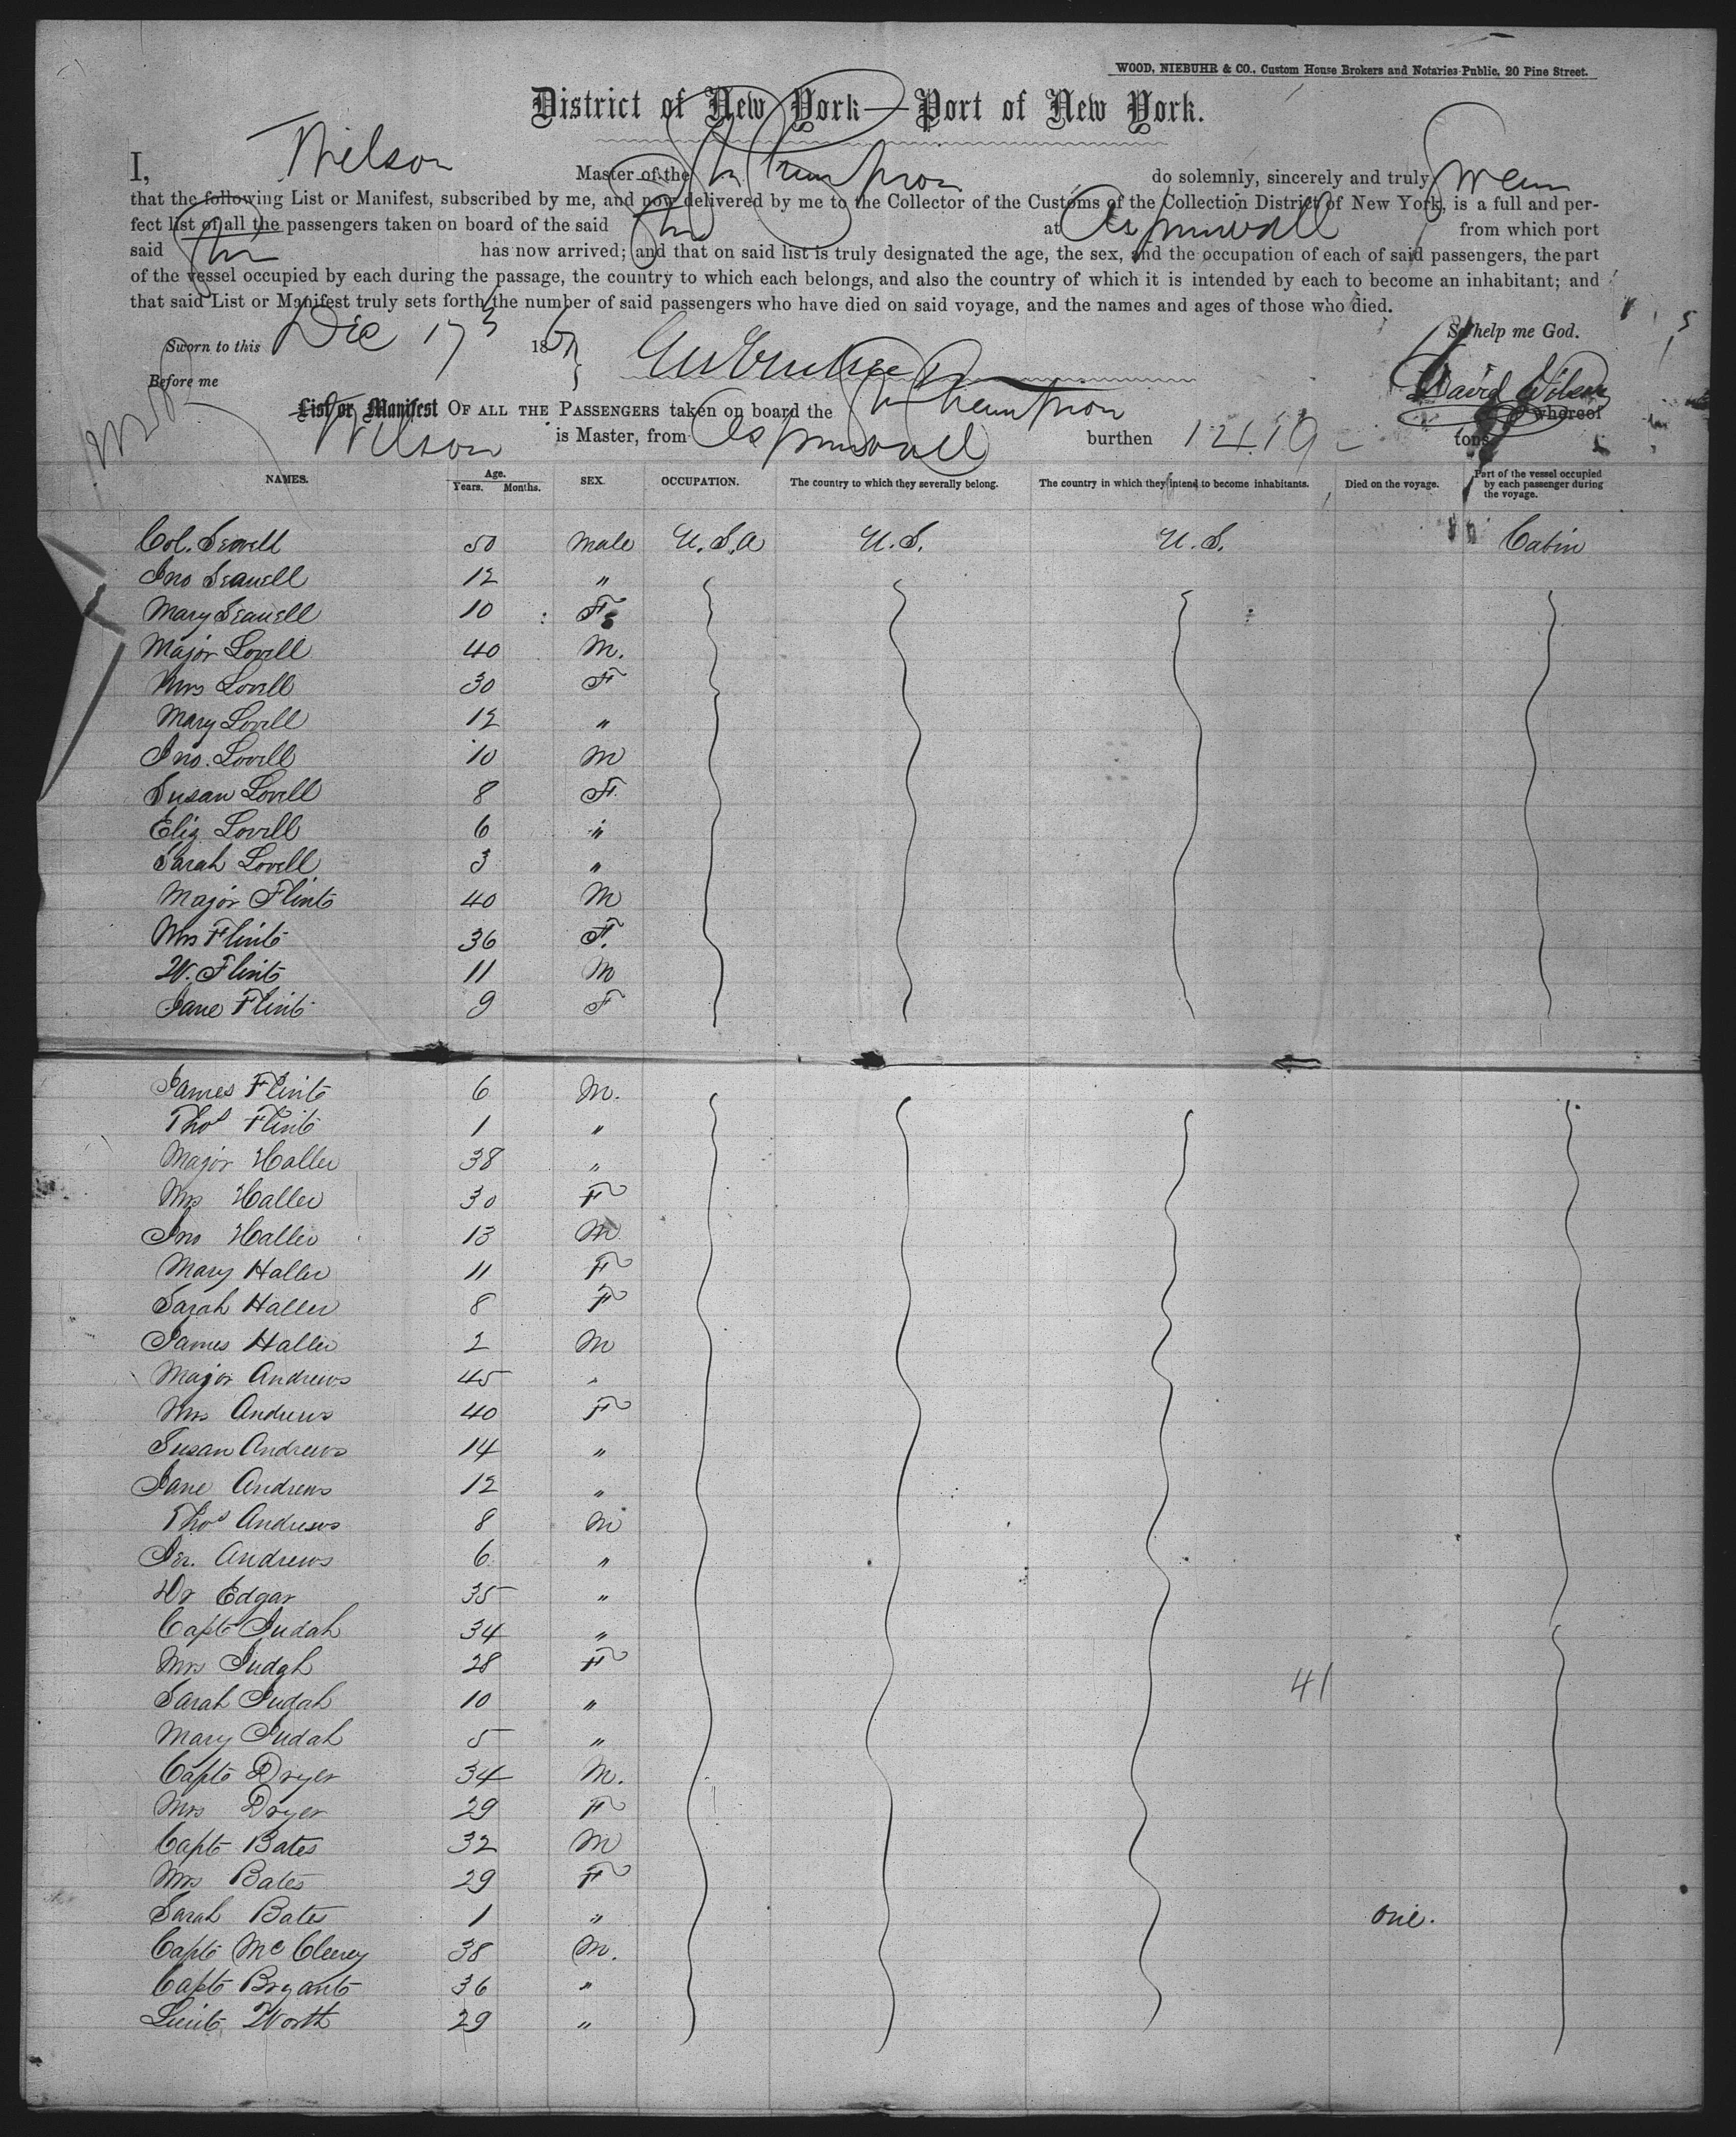 WOOD, NIEBUHR & CO., Custom House Brokers and Notaries Public, 20 Pine Street.
District of New York—Port of New York.
I, Wilson Master of the Str Champion do solemnly, sincerely and truly Swear
that the following List or Manifest, subscribed by me, and now delivered by me to the Collector of the Customs of the Collection District of New York, is a full and per-
fect list of all the passengers taken on board of the said Str at Aspinwall from which port
said Str has now arrived; and that on said list is truly designated the age, the sex, and the occupation of each of said passengers, the part
of the vessel occupied by each during the passage, the country to which each belongs, and also the country of which it is intended by each to become an inhabitant; and
that said List or Manifest truly sets forth the number of said passengers who have died on said voyage, and the names and ages of those who died.
So help me God.
Sworn to this Dec 17 186
Before me
David Wilson
List or Manifest OF ALL THE PASSENGERS taken on board the Str Champion whereof
Wilson is Master, from Aspinwall burthen 1419 tons
NAMES. Age. Years. Months. SEX. OCCUPATION. The country to which they severally belong. The country in which they intend to become inhabitants. Died on the voyage. Part of the vessel occupied by each passenger during the voyage.
Col. Sewell 50 Male U.S.A U.S. U.S. Cabin
Jno Seawell 12 "
Mary Seawell 10 F
Major Lovell 40 M.
Mrs Lovell 30 F
Mary Lovell 12 "
Jno. Lovell 10 M
Susan Lovell 8 F
Eliz Lovell 6 "
Sarah Lovell 3 "
Major Flint 40 M
Mrs Flint 36 F.
W. Flint 11 M
Jane Flint 9 F
James Flint 6 M.
Thos Flint 1 "
Major Haller 38 "
Mrs Haller 30 F
Jno Haller 13 M
Mary Haller 11 F
Sarah Haller 8 F
James Haller 2 M
Major Andrews 45 "
Mrs Andrews 40 F
Susan Andrews 14 "
Jane Andrews 12 "
Thos Andrews 8 M
Jer. Andrews 6 "
Dr Edgar 35 "
Capt Judah 34 "
Mrs Judah 28 F
Sarah Judah 10 " 41
Mary Judah 5 "
Capt Dryer 34 M.
Mrs Dryer 29 F
Capt Bates 32 M
Mrs Bates 29 F
Sarah Bates 1 " one.
Capt McCleery 38 M.
Capt Bryant 36 "
Lieut Worth 29 "